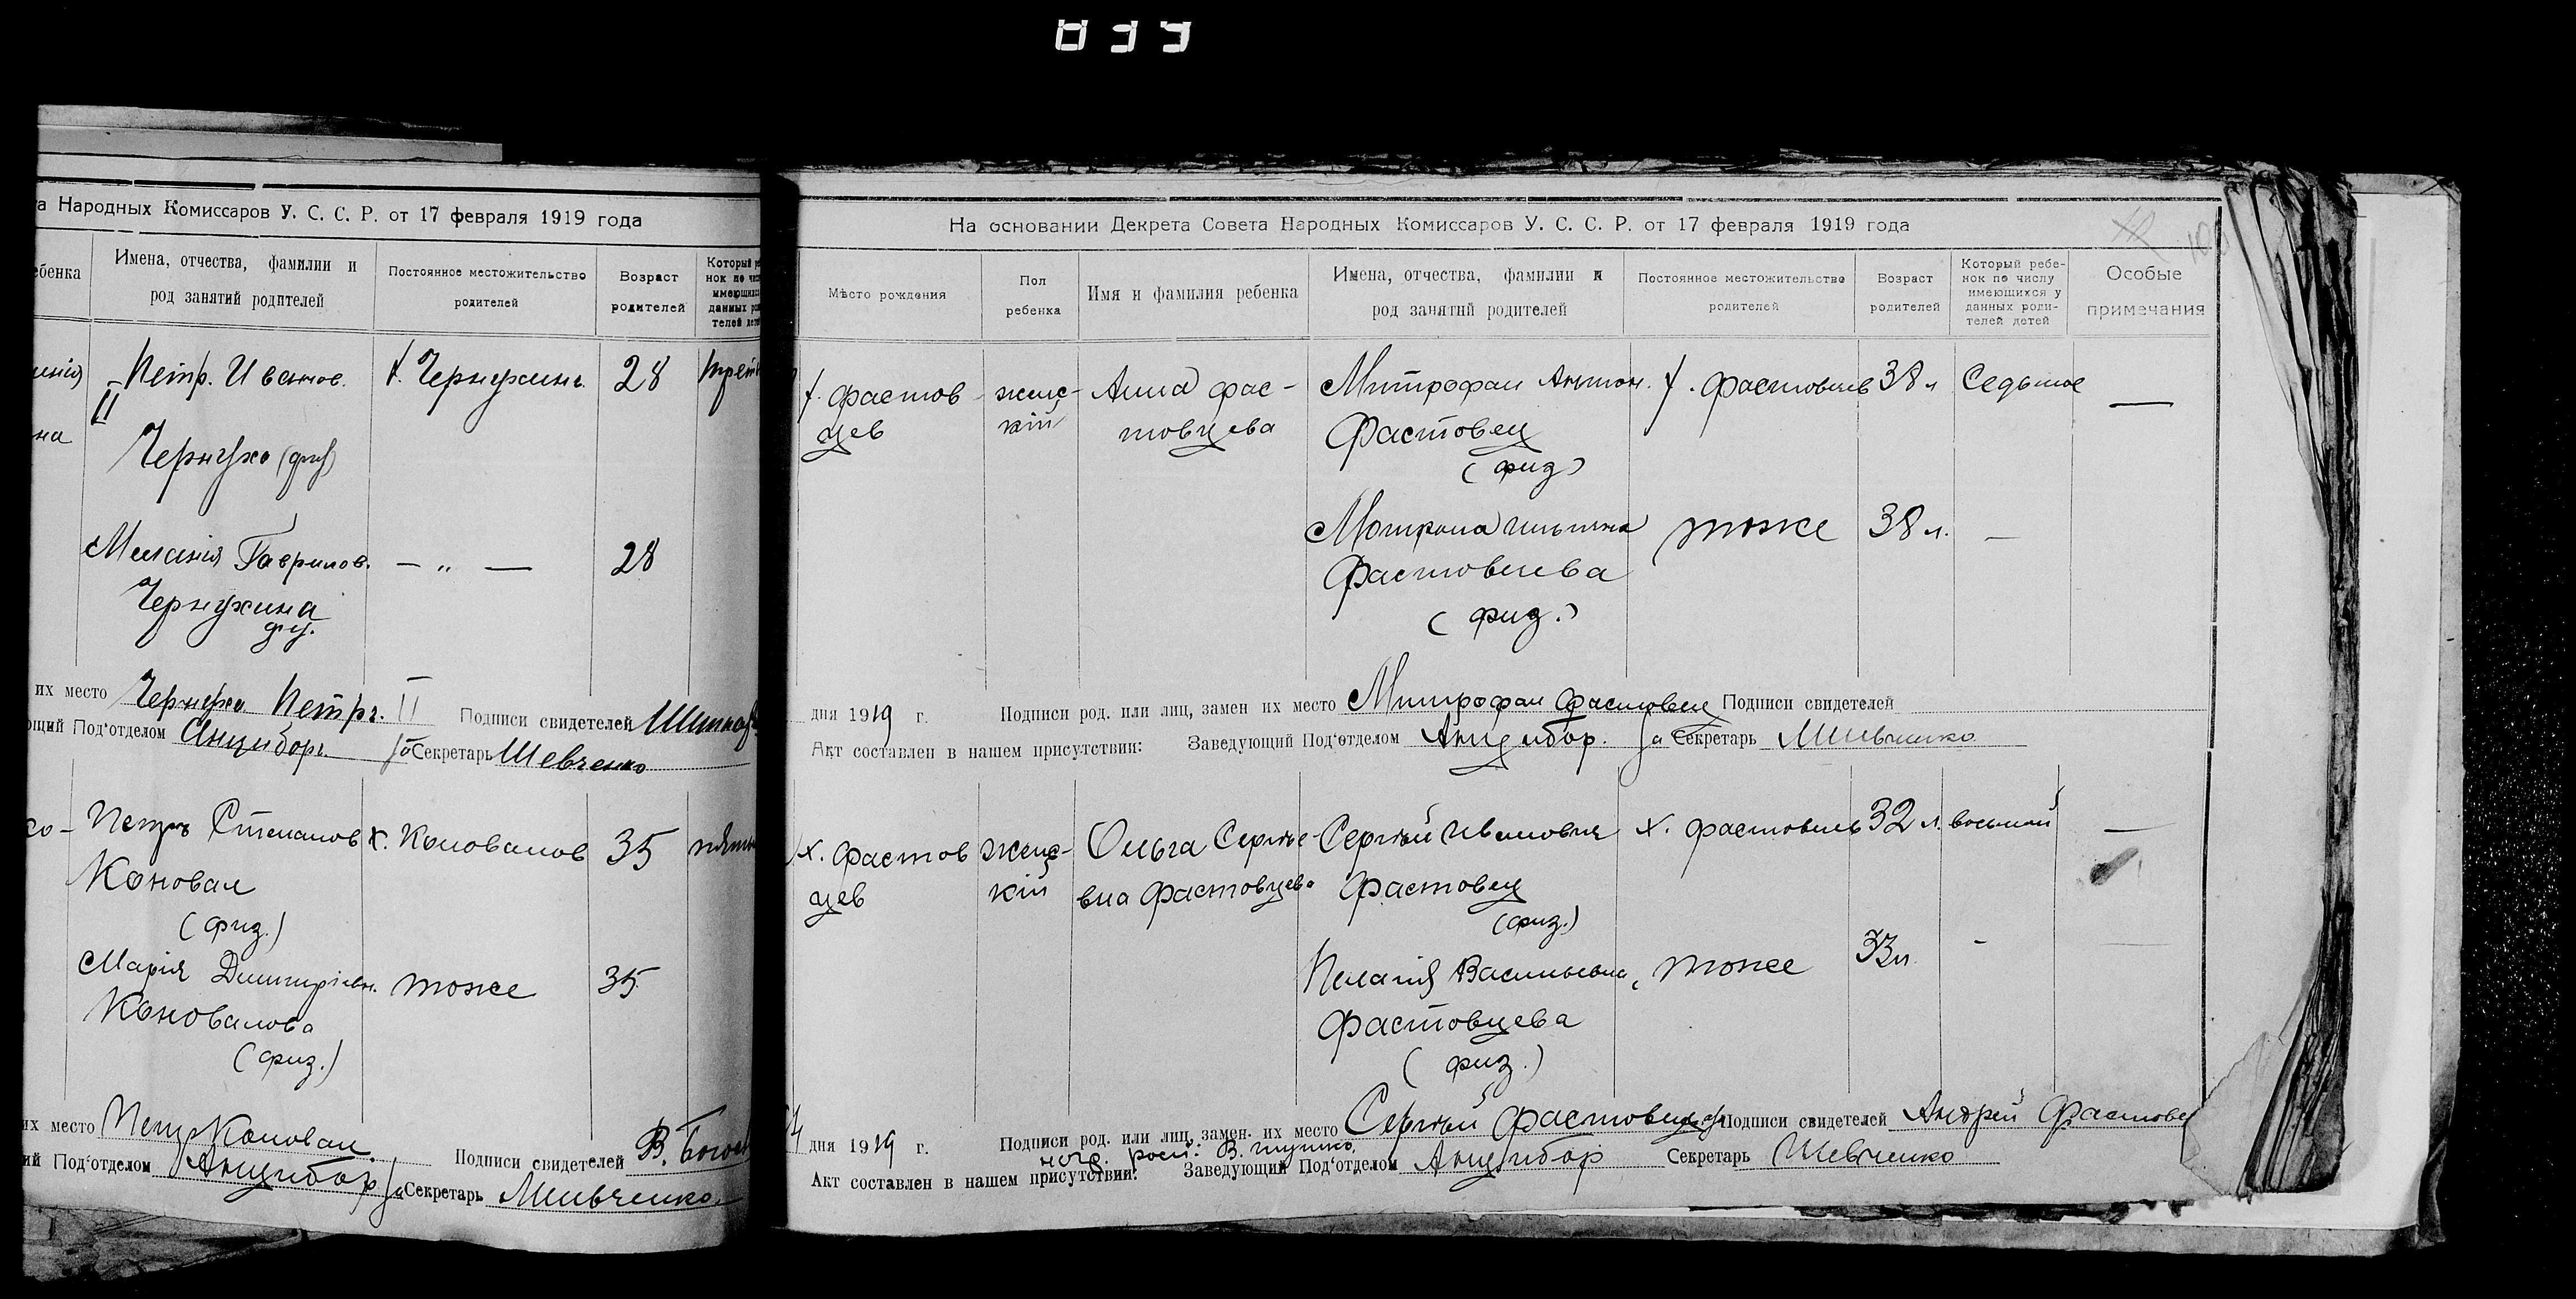 833
та Народных Комиссаров У. С. С. Р. от 17 февраля 1919 года
ебенка
Имена, отчества, фамилии и
род занятий родителей
Постоянное местожительство
родителей
Возраст
родителей
Который ре
нок по чис
имеющихс
данных ро
телей дет
Петр. Иванов. х. Чернухинъ 28
II
на
Чернухо (физ)
Меланія Гаврилов. — „ — 28
Чернухина
физ.
их место Чернухо Петръ. II Подписи свидетелей
ющий Под'отделом Анцыборъ За Секретарь Шевченко
ко- Петръ Степанов х. Коновалов 35
Коновал
(физ.)
Марія Дмитріевн. тоже 35
Коновалова
(физ.)
их место Петр Коновал. Подписи свидетелей В.
ий Под'отделом Анцыбор За Секретарь Шевченко
На основании Декрета Совета Народных Комиссаров У. С. С. Р. от 17 февраля 1919 года
Мѣсто рождения
Пол
ребенка
Имя и фамилия ребенка
Имена, отчества, фамилии и
род занятий родителей
Постоянное местожительство
родителей
Возраст
родителей
Который ребе-
нок по числу
имеющихся у
данных роди-
телей детей
Особые
примечания
х. Фастов- женс- Анна Фас- Митрофан Антон. х. Фастовцев 38 л Седьмое —
цев кій товцева Фастовец
(физ)
Матрона Ильина тоже 38 л. —
Фастовцева
(физ.)
дня 1919 г. Подписи род. или лиц, замен их место Митрофан Фастовец Подписи свидетелей
Акт составлен в нашем присутствии: Заведующий Под'отделом Анцыбор. За Секретарь Шевченко
х. Фастов женс- Ольга Сергѣе- Сергѣй Иванович х. Фастовцев 32 л. восьмой —
цев кій вна Фастовцева Фастовец
(физ.)
Пелагія Васильевна тоже 33 л. -
Фастовцева
(физ.)
дня 1919 г. Подписи род. или лиц, замен. их место Сергѣй Фастовец Подписи свидетелей Андрей Фастовец
Акт составлен в нашем присутствии: Заведующий Под'отделом Анцыбор Секретарь Шевченко